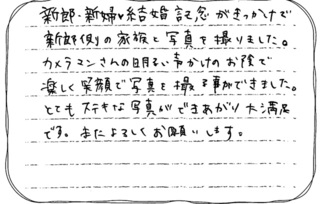 新郎・新婦♥結婚記念がきっかけで
新郎側の家族と写真を撮りました。
カメラマンさんの明るい声かけのお陰で
楽しく笑顔で写真を撮る事ができました。
とてもステキな写真ができあがり大満足
です。またよろしくお願いします。